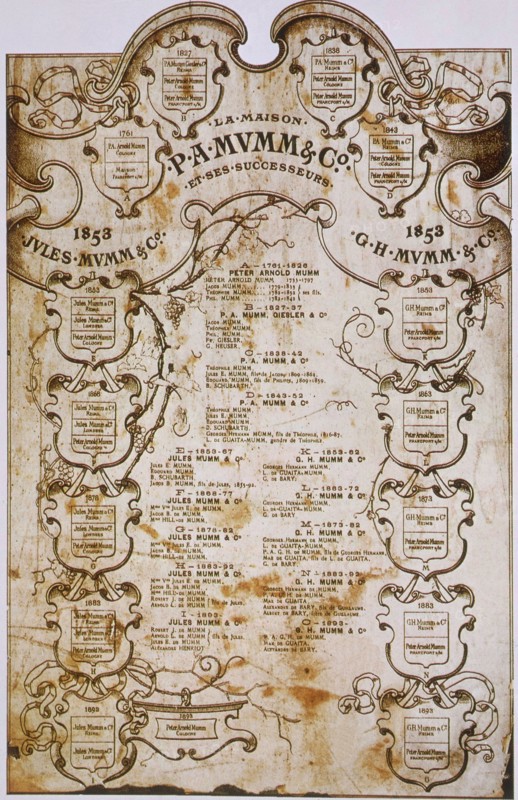 1827
P.A. Mumm Giesler & Co
Reims
Peter Arnold Mumm
Cologne
Peter Arnold Mumm
Francfort s/M.
B
1838
P.A. Mumm & Co
Reims
Peter Arnold Mumm
Cologne
Peter Arnold Mumm
Francfort s/M.
C
1761
P.A. Arnold Mumm
Cologne
Maison
Francfort s/M.
1843
P.A. Mumm & Co
Reims
Peter Arnold Mumm
Cologne
Peter Arnold Mumm
Francfort s/M.
D
·LA·MAISON·
P·A·MVMM & Co
·ET·SES·SUCCESSEURS·
1853
JVLES·MVMM & Co·
1853
·G·H·MVMM·&·Co
A — 1761-1826
PETER ARNOLD MUMM
PETER ARNOLD MUMM 1733-1797
Jacob MUMM
Théophile MUMM
Phil. MUMM
ses fils.
B — 1827-37
P. A. MUMM, GIESLER & Co
Jacob MUMM.
Théophile MUMM.
Phil. MUMM.
Fr. GIESLER.
G. HEUSER.
C — 1838-42
P. A. MUMM & Co
Théophile MUMM.
Jules E. MUMM, fils de Jacob,
Edouard MUMM, fils de Philippe,
B. SCHUBARTH.
D — 1843-52
P. A. MUMM & Co
Théophile MUMM.
Jules E. MUMM.
Edouard MUMM.
B. SCHUBARTH.
Georges Hermann MUMM, fils de Théophile, 1816-87.
L. de GUAITA-MUMM, gendre de Théophile
E — 1853-67
JULES MUMM & Co
Jules E. MUMM.
Edouard MUMM.
B. SCHUBARTH.
Jacob B. MUMM, fils de Jules,
F — 1868-77
JULES MUMM & Co
Mme Vve Jules E. de MUMM.
Jacob B. de MUMM.
Mme HILL-de MUMM.
G — 1878-82
JULES MUMM & Co
Mme Vve Jules E. de MUMM.
Jacob B. de MUMM.
Mme HILL-de MUMM.
H — 1883-92
JULES MUMM & Co
Mme Vve Jules E. de MUMM.
Jacob B. de MUMM.
Mme HILL-de MUMM.
Robert J. de MUMM
Arnold E. de MUMM
fils de Jules.
I — 1893-
JULES MUMM & Co
Robert J. de MUMM
Arnold E. de MUMM
fils de Jules.
Jules E. de MUMM
Alexandre HENRIOT
K — 1853-62
G. H. MUMM & Co
Georges Hermann MUMM.
L. de GUAITA-MUMM.
G. de BARY.
L — 1863-72
G. H. MUMM & Co
Georges Hermann MUMM.
L. de GUAITA-MUMM.
G. de BARY
M — 1873-82
G. H. MUMM & Co
Georges Hermann de MUMM.
L. de GUAITA-MUMM.
P. A. G. H. de MUMM, fils de Georges Hermann.
Max de GUAITA, fils de L. de GUAITA.
G. de BARY.
N — 1883-92
G. H. MUMM & Co
Georges Hermann de MUMM.
P. A. G. H. de MUMM.
Max de GUAITA.
Alexandre de BARY, fils de Guillaume.
Albert de BARY, fils de Guillaume
O — 1893-
G. H. MUMM & Co
P. A. G. H. de MUMM.
Max de GUAITA.
Alexandre de BARY.
1853
Jules Mumm & Co
Reims
Jules Mumm & Co
Londres
Peter Arnold Mumm
Cologne
Jules Mumm & Co
Reims
Jules Mumm & Co
Londres
Peter Arnold Mumm
Cologne
F
1878
Jules Mumm & Co
Reims
Jules Mumm & Co
Londres
Peter Arnold Mumm
Cologne
G
1883
Jules Mumm & Co
Reims
Jules Mumm & Co
Londres
Peter Arnold Mumm
Cologne
H
1893
Jules Mumm & Co
Reims
Jules Mumm & Co
Londres
1893
Peter Arnold Mumm
Cologne
1853
G.H. Mumm & Co
Reims
Peter Arnold Mumm
Francfort s/M.
K
1863
G.H. Mumm & Co
Reims
Peter Arnold Mumm
Francfort s/M.
L
1873
G.H. Mumm & Co
Reims
Peter Arnold Mumm
Francfort s/M.
M
1883
G.H. Mumm & Co
Reims
Peter Arnold Mumm
Francfort s/M.
N
1893
G.H. Mumm & Co
Reims
Peter Arnold Mumm
Francfort s/M.
O